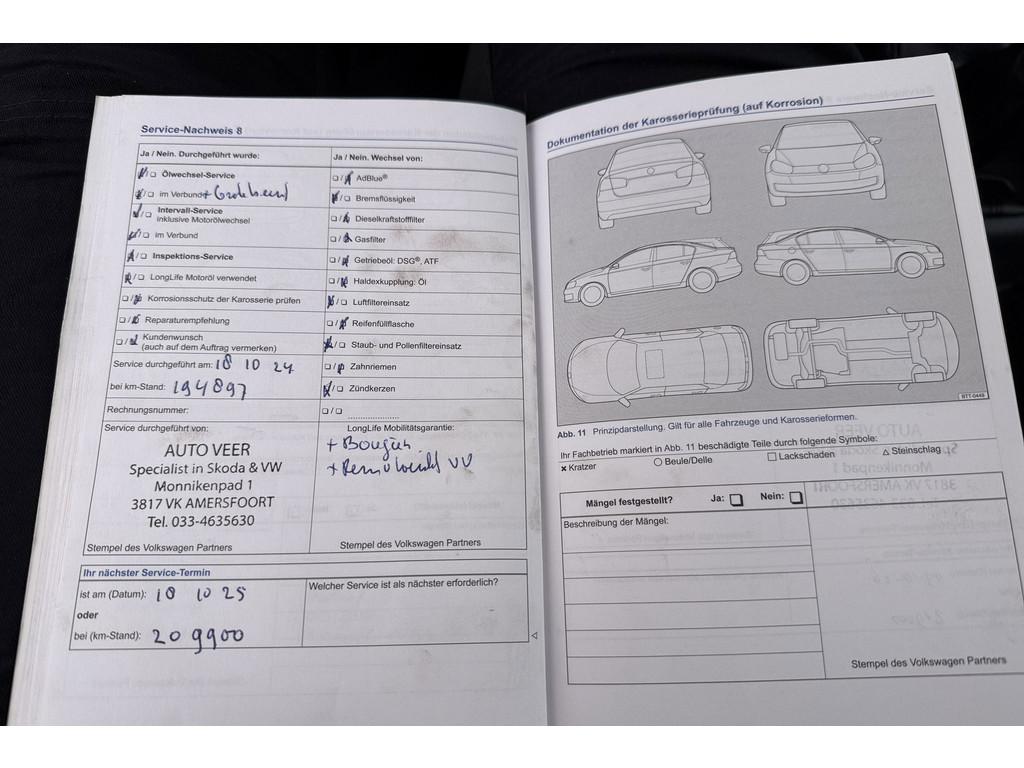 Service-Nachweis 8
Ja / Nein. Durchgeführt wurde:
Ölwechsel-Service
im Verbund
Intervall-Service
inklusive Motorölwechsel
im Verbund
Inspektions-Service
LongLife Motoröl verwendet
Korrosionsschutz der Karosserie prüfen
Reparaturempfehlung
Kundenwunsch
(auch auf dem Auftrag vermerken)
Service durchgeführt am: 18 10 24
bei km-Stand: 194897
Rechnungsnummer:
Ja / Nein. Wechsel von:
AdBlue®
Bremsflüssigkeit
Dieselkraftstofffilter
Gasfilter
Getriebeöl: DSG®, ATF
Haldexkupplung: Öl
Luftfiltereinsatz
Reifenfüllflasche
Staub- und Pollenfiltereinsatz
Zahnriemen
Zündkerzen
Service durchgeführt von:
AUTO VEER
Specialist in Skoda & VW
Monnikenpad 1
3817 VK AMERSFOORT
Tel. 033-4635630
Stempel des Volkswagen Partners
LongLife Mobilitätsgarantie:
+ Bougiën
Stempel des Volkswagen Partners
Ihr nächster Service-Termin
ist am (Datum): 18 10 25
oder
bei (km-Stand): 209900
Welcher Service ist als nächster erforderlich?
Dokumentation der Karosserieprüfung (auf Korrosion)
BTT-0449
Abb. 11 Prinzipdarstellung. Gilt für alle Fahrzeuge und Karosserieformen.
Ihr Fachbetrieb markiert in Abb. 11 beschädigte Teile durch folgende Symbole:
× Kratzer ○ Beule/Delle □ Lackschaden △ Steinschlag
Mängel festgestellt? Ja: □ Nein: □
Beschreibung der Mängel:
Stempel des Volkswagen Partners